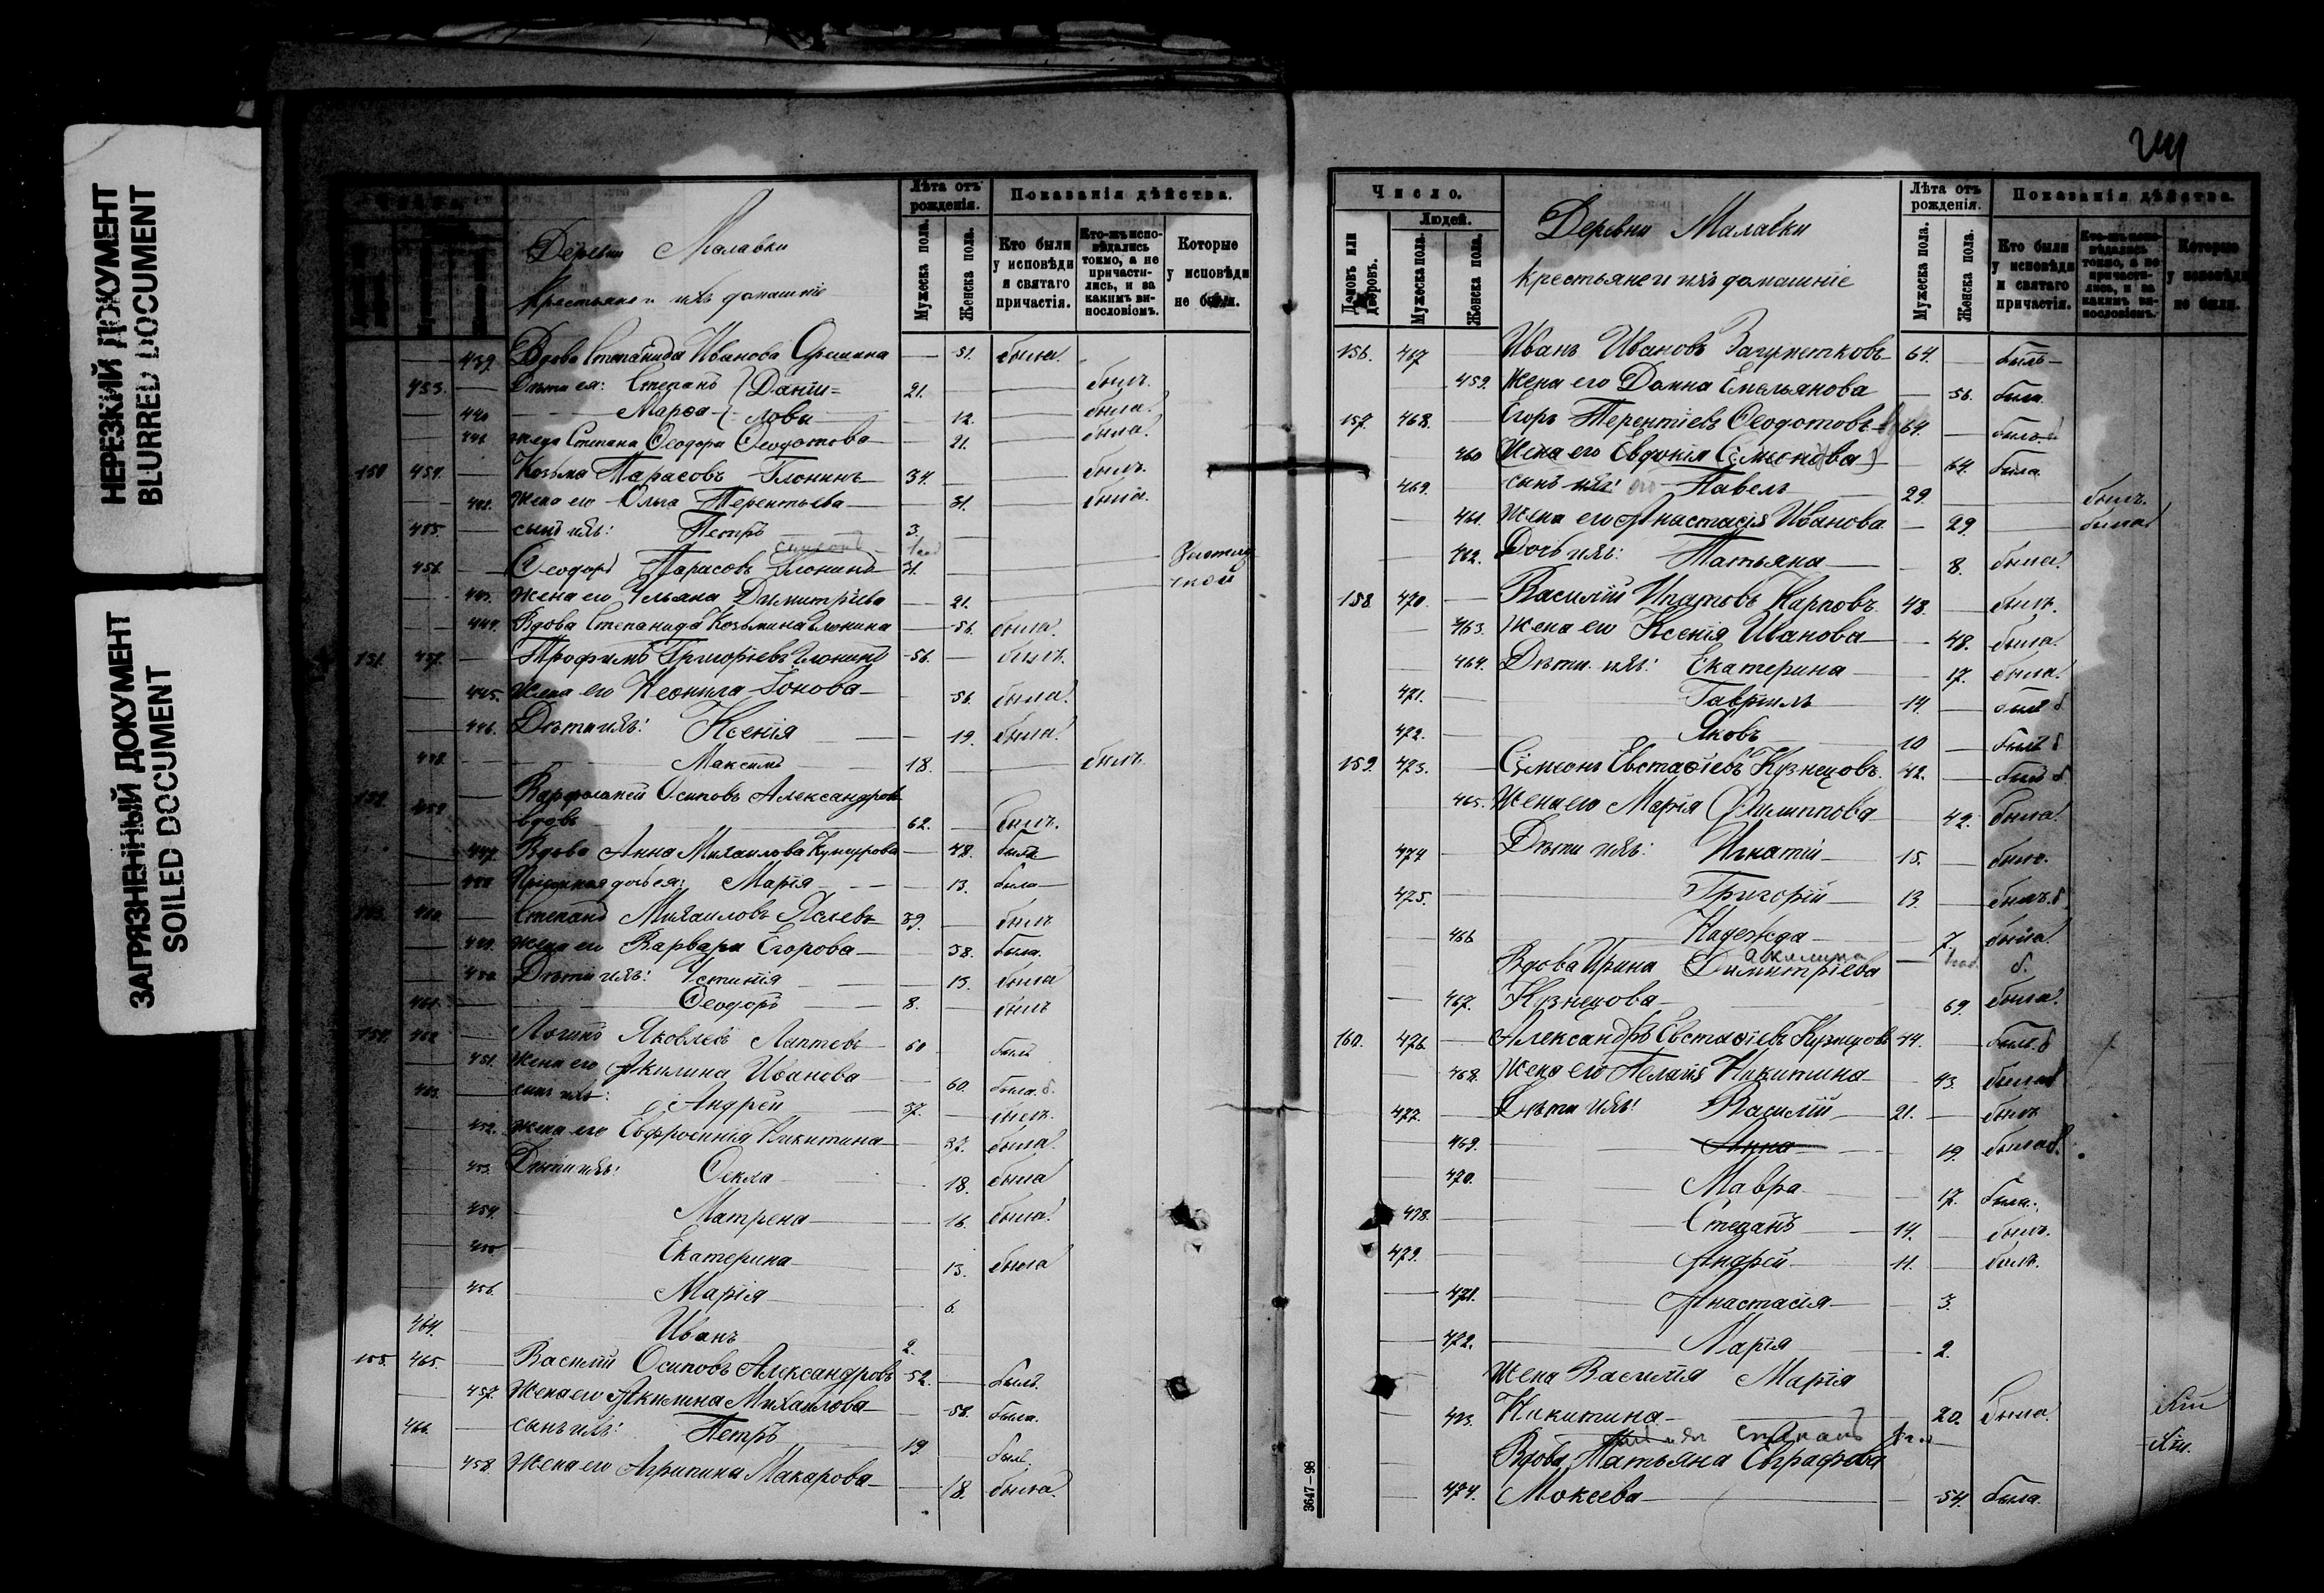 НЕРЕЗКИЙ ДОКУМЕНТ
BLURRED DOCUMENT
ЗАГРЯЗНЕННЫЙ ДОКУМЕНТ
SOILED DOCUMENT
Деревни Малавки
Крестьяне и ихъ домашнiе
Лѣта отъ рожденiя.
Мужеска пола.
Женска пола.
Показанiя дѣйства.
Кто были у исповѣди и святаго причастiя.
Кто-жъ исповѣдались токмо, а не причастились, и за какимъ винословiемъ.
Которые у исповѣди не были.
439. Вдова Степанида Иванова 51. была.
453. Дѣти ея: Степанъ Данiи= 21. былъ.
440 Марѳа ловы 12. была.
441. жена Степана Ѳеодора Ѳеодотова 21. была.
150 454. Козьма Тарасовъ Глонинъ 34. былъ.
442. жена его Ольга Терентьева 31. была.
455. сынъ ихъ: Петръ 3.
456. Ѳеодоръ Тарасовъ Глонинъ 31.
443. жена его Ульяна Димитрiева 21.
444. Вдова Степанида Козьмина Глонина 56. была.
151. 457. Трофимъ Григорiевъ Глонинъ 56. былъ.
445. жена его Неонила Iонова 56. была.
446. Дѣти ихъ: Ксенiя 19. была.
458. Максимъ 18. былъ.
152. 459. Варфоломей Осиповъ Александровъ
вдовъ 62. былъ.
447. Вдова Анна Михаилова 48. была
448 дочь ея: Марiя 13. была
153. 460. Степанъ Михаиловъ 39. былъ
449. жена его Варвара Егорова 38. была.
450. Дѣти ихъ: Устинiя 13. была
461. Ѳеодоръ 8. былъ
154. 462 Логинъ Яковлевъ Лаптевъ 60 былъ
451. жена его Акилина Иванова 60. была. б.
463. сынъ ихъ: Андрей 37. былъ.
452. жена его Евфросинiя Никитина 37. была.
453. Дѣти ихъ: Ѳекла 18. была
454. Матрена 16. была.
455 Екатерина 13. была
456. Марiя 6.
464. Иванъ 2.
155. 465. Василiй Осиповъ Александровъ 52. былъ.
457. Жена его Акилина Михаилова 58. была.
466. сынъ ихъ: Петръ 19. былъ.
458. Жена его Агрипина Макарова 18. была.
Число.
Домовъ или дворовъ.
Людей.
Мужеска пола.
Женска пола.
Деревни Малавки
крестьяне и ихъ домашнiе
Лѣта отъ рожденiя.
Мужеска пола.
Женска пола.
Показанiя дѣйства.
Кто были у исповѣди и святаго причастiя.
Кто-жъ исповѣдались токмо, а не причастились, и за какимъ винословiемъ.
Которые у исповѣди не были.
156. 467 Иванъ Ивановъ 64. былъ
459. Жена его Домна Емельянова 56. была.
157. 468. Егоръ Терентiевъ Ѳеодотовъ 64. былъ
460 Жена его Евдокiя Сѵмеонова 64. была.
469. сынъ Павелъ 29. былъ.
461. Жена его Анастасiя Иванова 29. была
462. Дочь ихъ: Татьяна 8. была.
158. 470. Василiй Ипатовъ Карповъ 48. былъ.
463. Жена его Ксенiя Иванова 48. была.
464. Дѣти ихъ: Екатерина 17. была.
471. Гаврiилъ 14. былъ б
472. Яковъ 10 былъ б
159. 473. Сѵмеонъ Евстафiевъ Кузнецовъ. 42. былъ б
465. Жена его Марiя Филиппова 42. была.
474 Дѣти ихъ: Игнатiй 15. былъ.
475. Григорiй 13. былъ. б
466 Надежда 7. была.
Акилина б.
Вдова Ирина Димитрiева
467. Кузнецова 69. была.
160. 476. Александръ Евстафiевъ Кузнецовъ 44. былъ. б
468. Жена его Пелагiя Никитина 43. была
477. Дѣти ихъ: Василiй 21. былъ
469. Анна 19. была
470. Мавра 17. была.
478. Степанъ 14. былъ.
479. Андрей 11. былъ.
471. Анастасiя 3.
472. Марiя 2.
Жена Василiя Марiя
473. Никитина 20. была.
Степанъ
Вдова Татьяна Евграфова
474. Мокеева 54. была.
3647—98